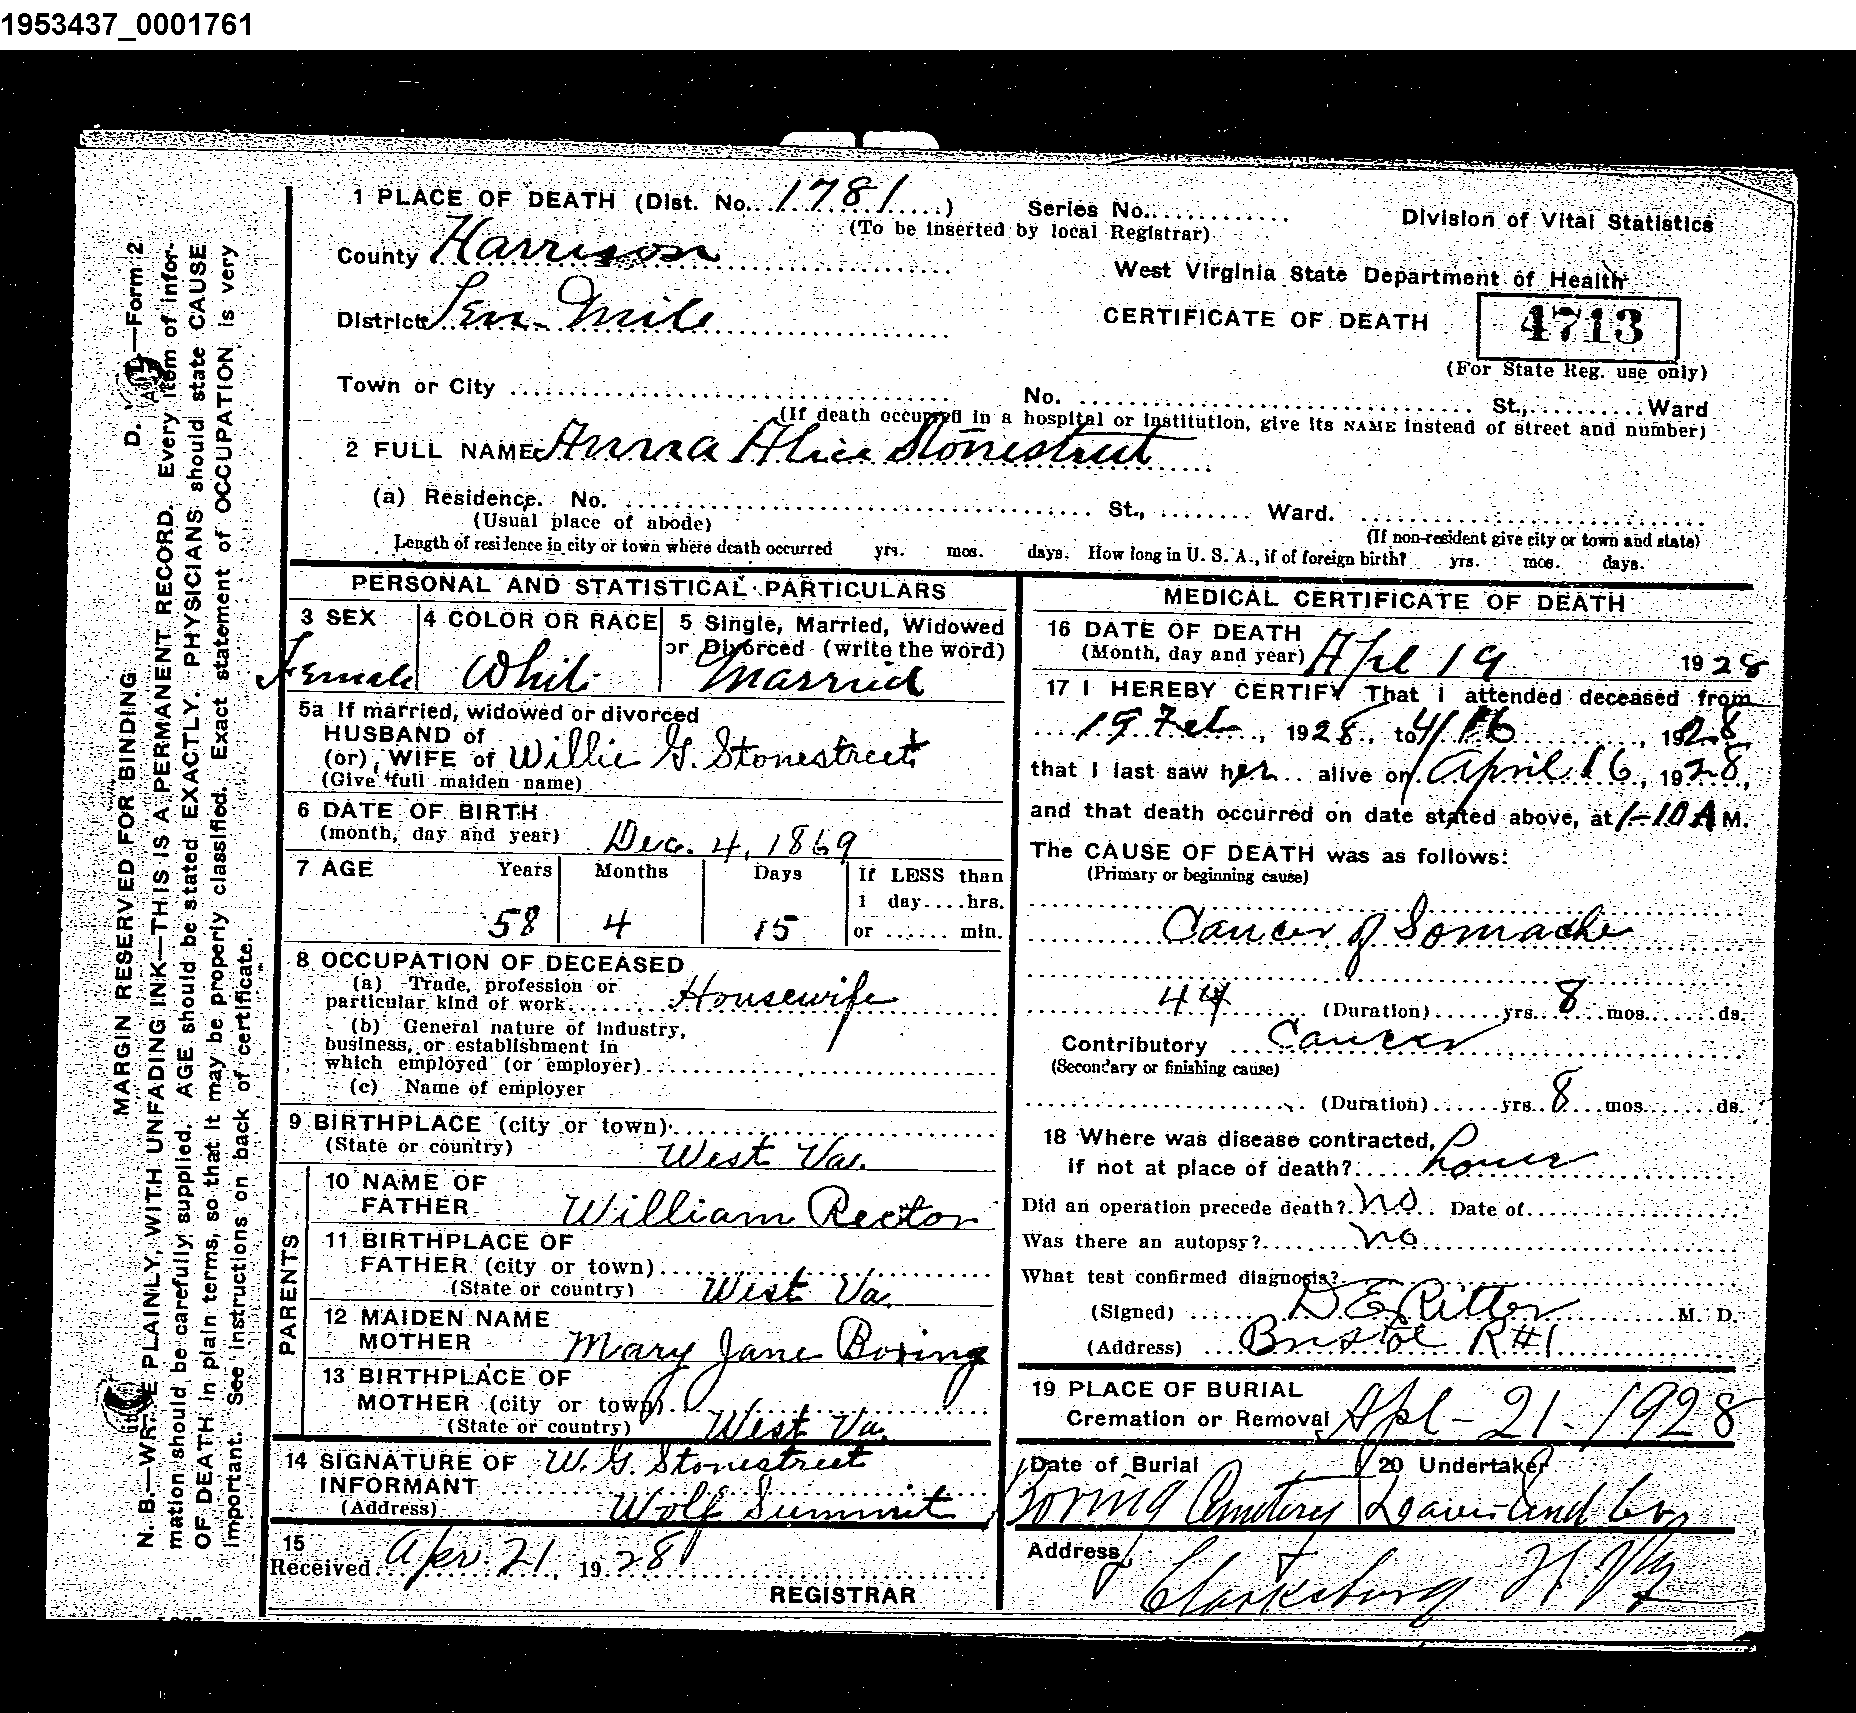 1953437_0001761
1 PLACE OF DEATH (Dist. No. 1781) Series No. Division of Vital Statistics
(To be inserted by local Registrar)
County Harrison
West Virginia State Department of Health
District Ten Mile
CERTIFICATE OF DEATH 4713
(For State Reg. use only)
Town or City No. St., Ward
(If death occurred in a hospital or institution, give its NAME instead of street and number)
2 FULL NAME Anna Alice Stonestreet
(a) Residence. No. St., Ward.
(Usual place of abode) (If non-resident give city or town and state)
Length of residence in city or town where death occurred yrs. mos. days. How long in U. S. A., if of foreign birth? yrs. mos. days.
PERSONAL AND STATISTICAL PARTICULARS
3 SEX 4 COLOR OR RACE 5 Single, Married, Widowed
or Divorced (write the word)
Female White Married
5a If married, widowed or divorced
HUSBAND of
(or) WIFE of Willie G. Stonestreet
(Give full maiden name)
6 DATE OF BIRTH
(month, day and year) Dec. 4, 1869
7 AGE Years Months Days If LESS than
1 day....hrs.
58 4 15 or ...... min.
8 OCCUPATION OF DECEASED
(a) Trade, profession or
particular kind of work Housewife
(b) General nature of industry,
business, or establishment in
which employed (or employer)
(c) Name of employer
9 BIRTHPLACE (city or town)
(State or country) West Va.
PARENTS
10 NAME OF
FATHER William Rector
11 BIRTHPLACE OF
FATHER (city or town)
(State or country) West Va.
12 MAIDEN NAME
MOTHER Mary Jane Boring
13 BIRTHPLACE OF
MOTHER (city or town)
(State or country) West Va.
14 SIGNATURE OF W. G. Stonestreet
INFORMANT
(Address) Wolf Summit
15
Received Apr. 21, 1928
REGISTRAR
MEDICAL CERTIFICATE OF DEATH
16 DATE OF DEATH
(Month, day and year) Apl 19 1928
17 I HEREBY CERTIFY That I attended deceased from
19 Feb, 1928, to 4/16, 1928
that I last saw her alive on April 16, 1928,
and that death occurred on date stated above, at 1-10 A M.
The CAUSE OF DEATH was as follows:
(Primary or beginning cause)
Cancer of Somache
44 (Duration) yrs. 8 mos. ds.
Contributory Cancer
(Secondary or finishing cause)
(Duration) yrs. 8 mos. ds.
18 Where was disease contracted,
if not at place of death?
Did an operation precede death? no Date of
Was there an autopsy? no
What test confirmed diagnosis?
(Signed) D E Ritter M. D.
(Address) Bristol R#1
19 PLACE OF BURIAL
Cremation or Removal Apl-21-1928
Date of Burial 20 Undertaker
Boring Cemetery Co
Address
Clarksburg W. Va
MARGIN RESERVED FOR BINDING D. —Form 2
N. B.—WRITE PLAINLY, WITH UNFADING INK—THIS IS A PERMANENT RECORD. Every item of infor-
mation should be carefully supplied. AGE should be stated EXACTLY. PHYSICIANS should state CAUSE
OF DEATH in plain terms, so that it may be properly classified. Exact statement of OCCUPATION is very
important. See instructions on back of certificate.